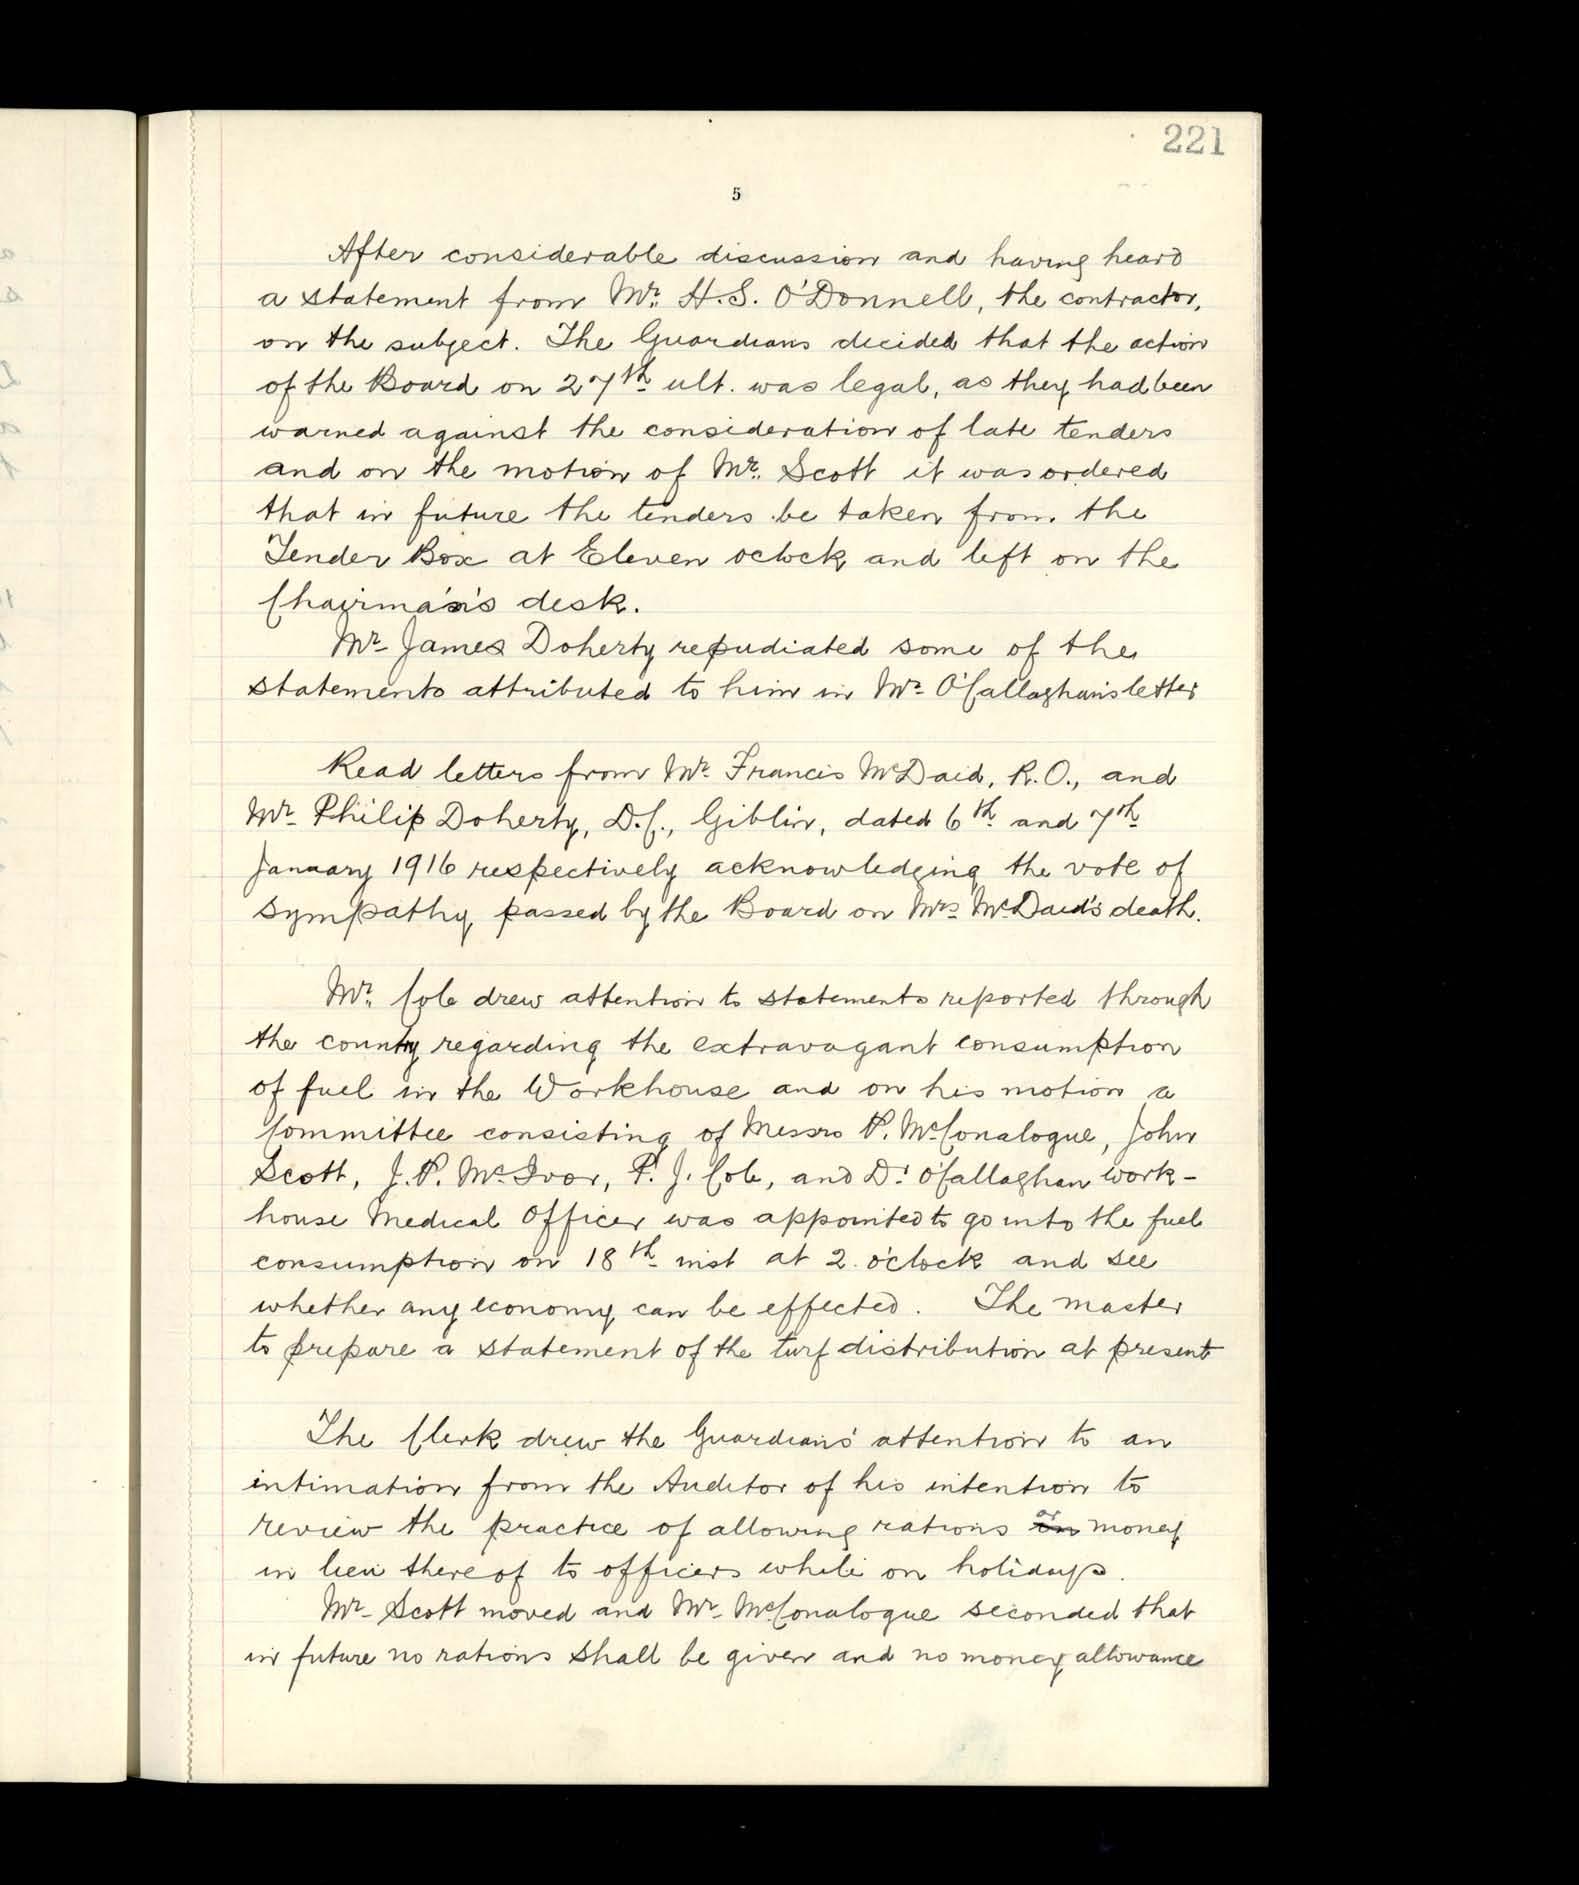 221
5
After considerable discussion and having heard
a statement from Mr. H.S. O'Donnell, the contractor,
on the subject. The Guardians decided that the action
of the Board on 27th ult. was legal, as they had been
warned against the consideration of late tenders
and on the motion of Mr. Scott it was ordered
that in future the tenders be taken from the
Tender Box at Eleven oclock and left on the
Chairman's desk.
Mr James Doherty repudiated some of the
statements attributed to him in Mr O'Callaghan's letter
Read letters from Mr Francis McDaid, R.O., and
Mr Philip Doherty, D.C., Giblin, dated 6th and 7th
January 1916 respectively acknowledging the vote of
sympathy passed by the Board on Mrs McDaid's death.
Mr. Cole drew attention to statements reported through
the country regarding the extravagant consumption
of fuel in the Workhouse and on his motion a
Committee consisting of Messrs P. McConalogue, John
Scott, J.P. McIvor, P. J. Cole, and Dr O'Callaghan Work-
house Medical Officer was appointed to go into the fuel
consumption on 18th inst at 2 o'clock and see
whether any economy can be effected. The master
to prepare a statement of the turf distribution at present
The Clerk drew the Guardians' attention to an
intimation from the Auditor of his intention to
review the practice of allowing rations or money
in lieu thereof to officers while on holidays.
Mr Scott moved and Mr McConalogue seconded that
in future no rations shall be given and no money allowance